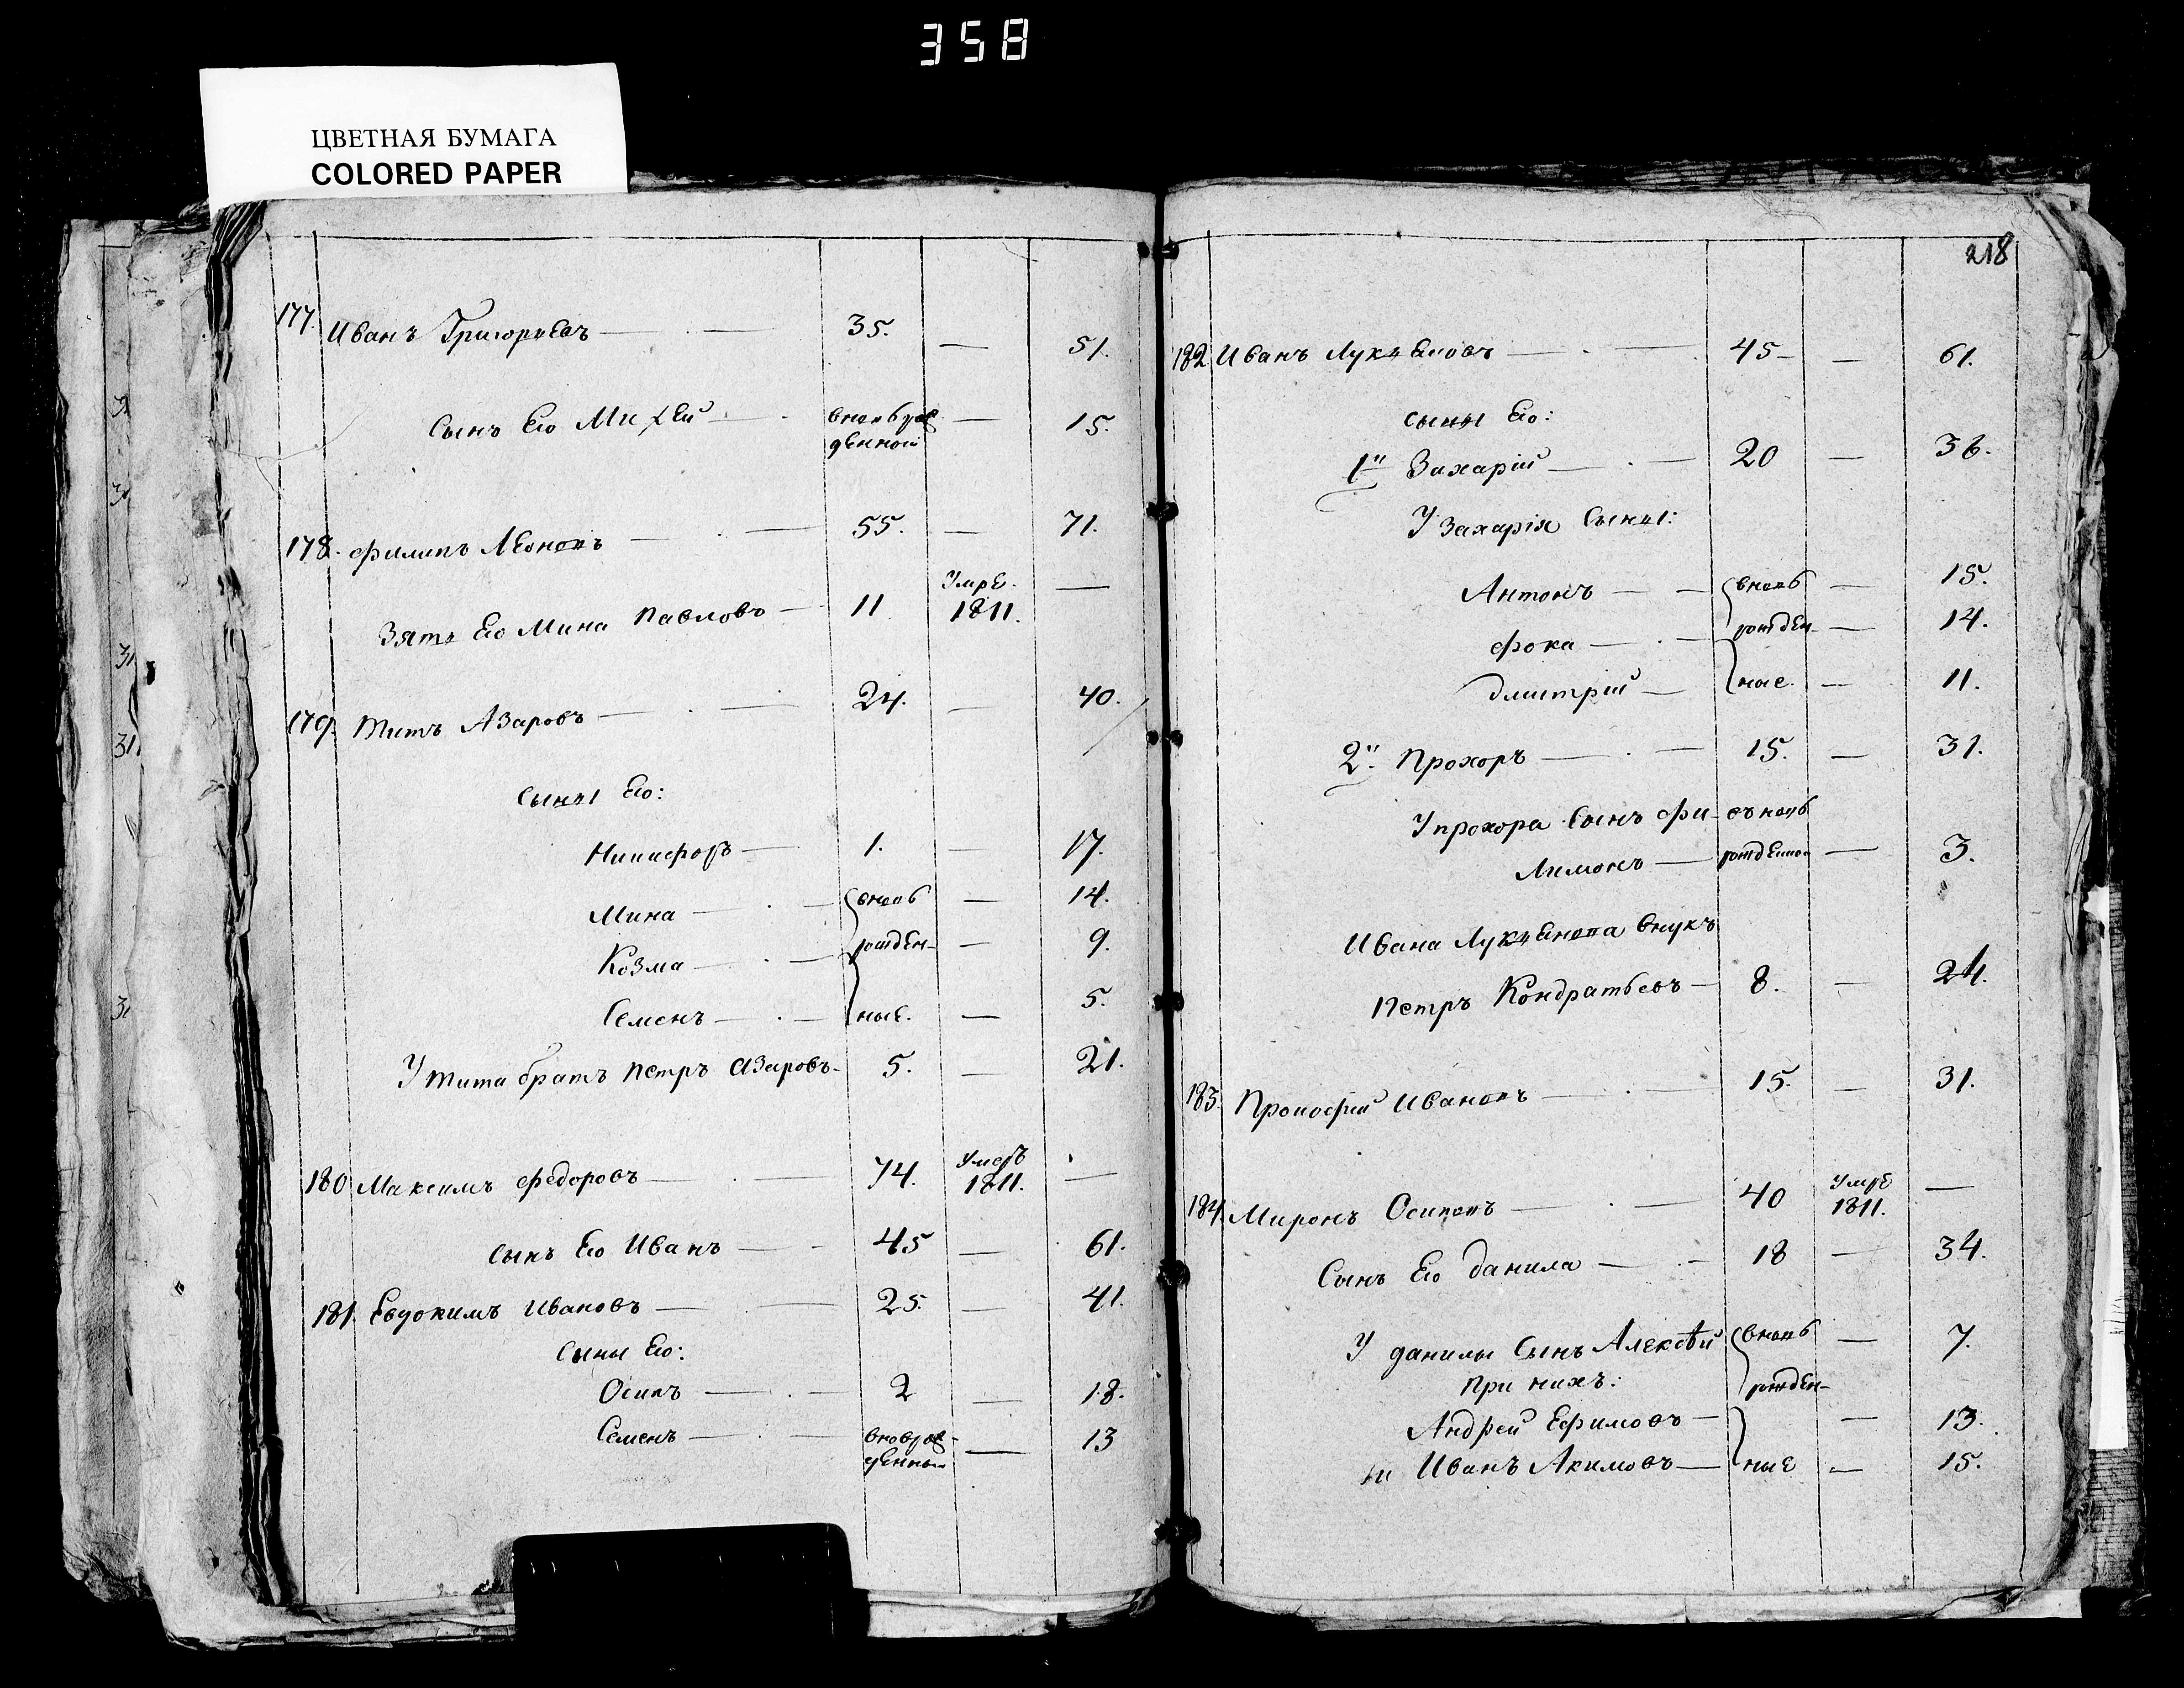 358
ЦВЕТНАЯ БУМАГА
COLORED PAPER
177. Иванъ Григорьевъ — 35. — 51.
Сынъ Его Михей — вновьрож
денной — 15.
178. Филипъ Леоновъ — 55. — 71.
Зять Его Мина Павловъ — 11 Умре. 1811. —
179. Титъ Азаровъ — 24. — 40.
Сыны Его:
Никифоръ — 1. — 17.
Мина — вновь — 14.
Козма — рожден- — 9.
Семенъ — ные. — 5.
У Тита братъ Петръ Азаровъ — 5. — 21.
180 Максимъ Федоровъ — 74. Умеръ 1811. —
Сынъ Его Иванъ — 45 — 61.
181. Евдокимъ Ивановъ — 25. — 41.
Сыны Его:
Осипъ — 2 — 18.
Семенъ — вноврож-
денный — 13
218
182 Иванъ Лукьяновъ — 45 — 61.
Сыны Его:
1й Захарій — 20 — 36.
У Захарія Сыны:
Антонъ — вновь — 15.
Фока — рожден- — 14.
Дмитрій — ные. — 11.
2й Прохоръ — 15. — 31.
У прохора Сынъ Фи- вновь
лимонъ — рожденной — 3.
Ивана Лукьянова внукъ
Петръ Кондратьевъ — 8. — 24.
183. Прокофей Ивановъ — 15. — 31.
184. Миронъ Осиповъ — 40 Умре 1811. —
Сынъ Его Данила — 18 — 34.
У Данилы Сынъ Алексѣй вновь — 7.
При нихъ: рожден-
Андрей Ефимовъ — 13.
и Иванъ Акимовъ — ные — 15.